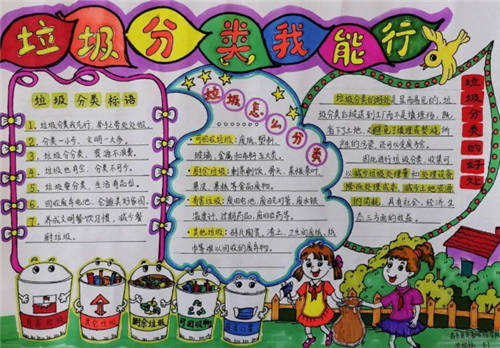 垃圾分类我能行
垃圾分类标语
1、垃圾分类我先行,
2、分类一小步,文明一大步。
3、垃圾分一分,
4、垃圾也有家,分类不可少。
5、垃圾要分类,生活有品位。
6、回收废弃电池,
7、养成文明餐饮习惯,减少餐
厨垃圾。
垃圾怎么分类
可回收垃圾:废纸、塑料、
玻璃、金属和布料五大类。
厨余垃圾:剩菜剩饭、骨头、菜根菜叶、
果皮、果核等食品废物。
有害垃圾:废旧电池、废旧灯管、废水银
温度计、过期药品、废旧家电等。
其他垃圾:砖瓦陶瓷、渣土、卫生间废纸、纸
巾等难以回收的废弃物。
垃圾分类的好处
垃圾分类的好处是显而易见的,垃
圾分类后被送到工厂而不是填埋场,既
省下了土地,又避免了填埋或焚烧所
产生的污染,还可以变废为宝。
因此进行垃圾分类,收集可
以减少垃圾处理量和处理设备,
降低处理成本,减少土地资源
的消耗,具有社会、经济、生
态三方面的效益。
有害垃圾
其他垃圾
厨余垃圾
可回收物